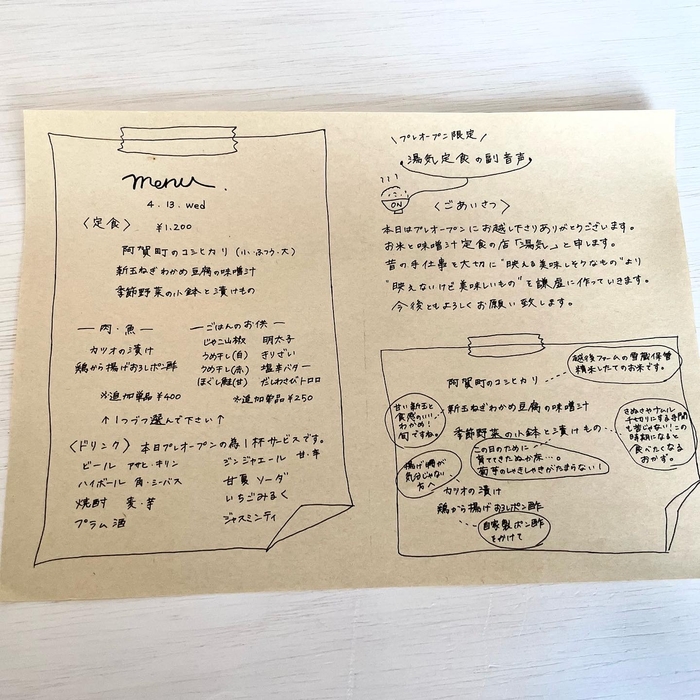 menu
4.13.wed
〈定食〉 ¥1.200
阿賀町のコシヒカリ(小・ふつう・大)
新玉ねぎわかめ豆腐の味噌汁
季節野菜の小鉢と漬けもの
―肉・魚― ―ごはんのお供―
カツオの漬け
鶏から揚げおろしポン酢
※追加単品¥400
じゃこ山椒 明太子
うめ干し(白) きりざい
うめ干し(赤) 塩辛バター
ほぐし鮭(甘) だしわさびトロロ
※追加単品¥250
↑1つづつ選んで下さい↑
〈ドリンク〉 本日プレオープンの為1杯サービスです。
ビール アサヒ・キリン
ハイボール 角・シーバス
焼酎 麦・芋
プラム酒
ジンジャエール 甘・辛
甘夏ソーダ
いちごみるく
ジャスミンティ
\プレオープン限定/
湯気定食の副音声
ON
〈ごあいさつ〉
本日はプレオープンにお越し下さりありがとうございます。
お米と味噌汁定食の店「湯気」と申します。
昔の手仕事を大切に"映える美味しそうなもの"より
"映えないけど美味しいもの"を謙虚に作っていきます。
今後ともよろしくお願い致します。
越後ファームの雪蔵保管
精米したてのお米です。
阿賀町のコシヒカリ
甘い新玉と
食感のいい
わかめ!
旬ですね。
新玉ねぎわかめ豆腐の味噌汁
季節野菜の小鉢と漬けもの
きぬさやナムル
千切りにする手間
も苦じゃない!この
時期になると
食べたくなる
おかず。
この日のために
育ててきたぬか床…。
菊芋のしゃきしゃきがたまらない!
揚げ物が
気分じゃない
方へ
カツオの漬け
鶏から揚げおろしポン酢
自家製ポン酢
をかけて